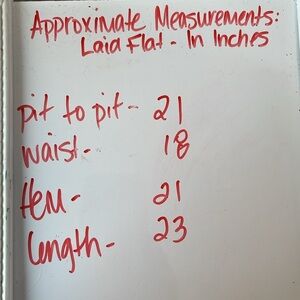 Approximate Measurements:
Laid Flat - In Inches
pit to pit - 21
waist - 18
Hem - 21
length - 23